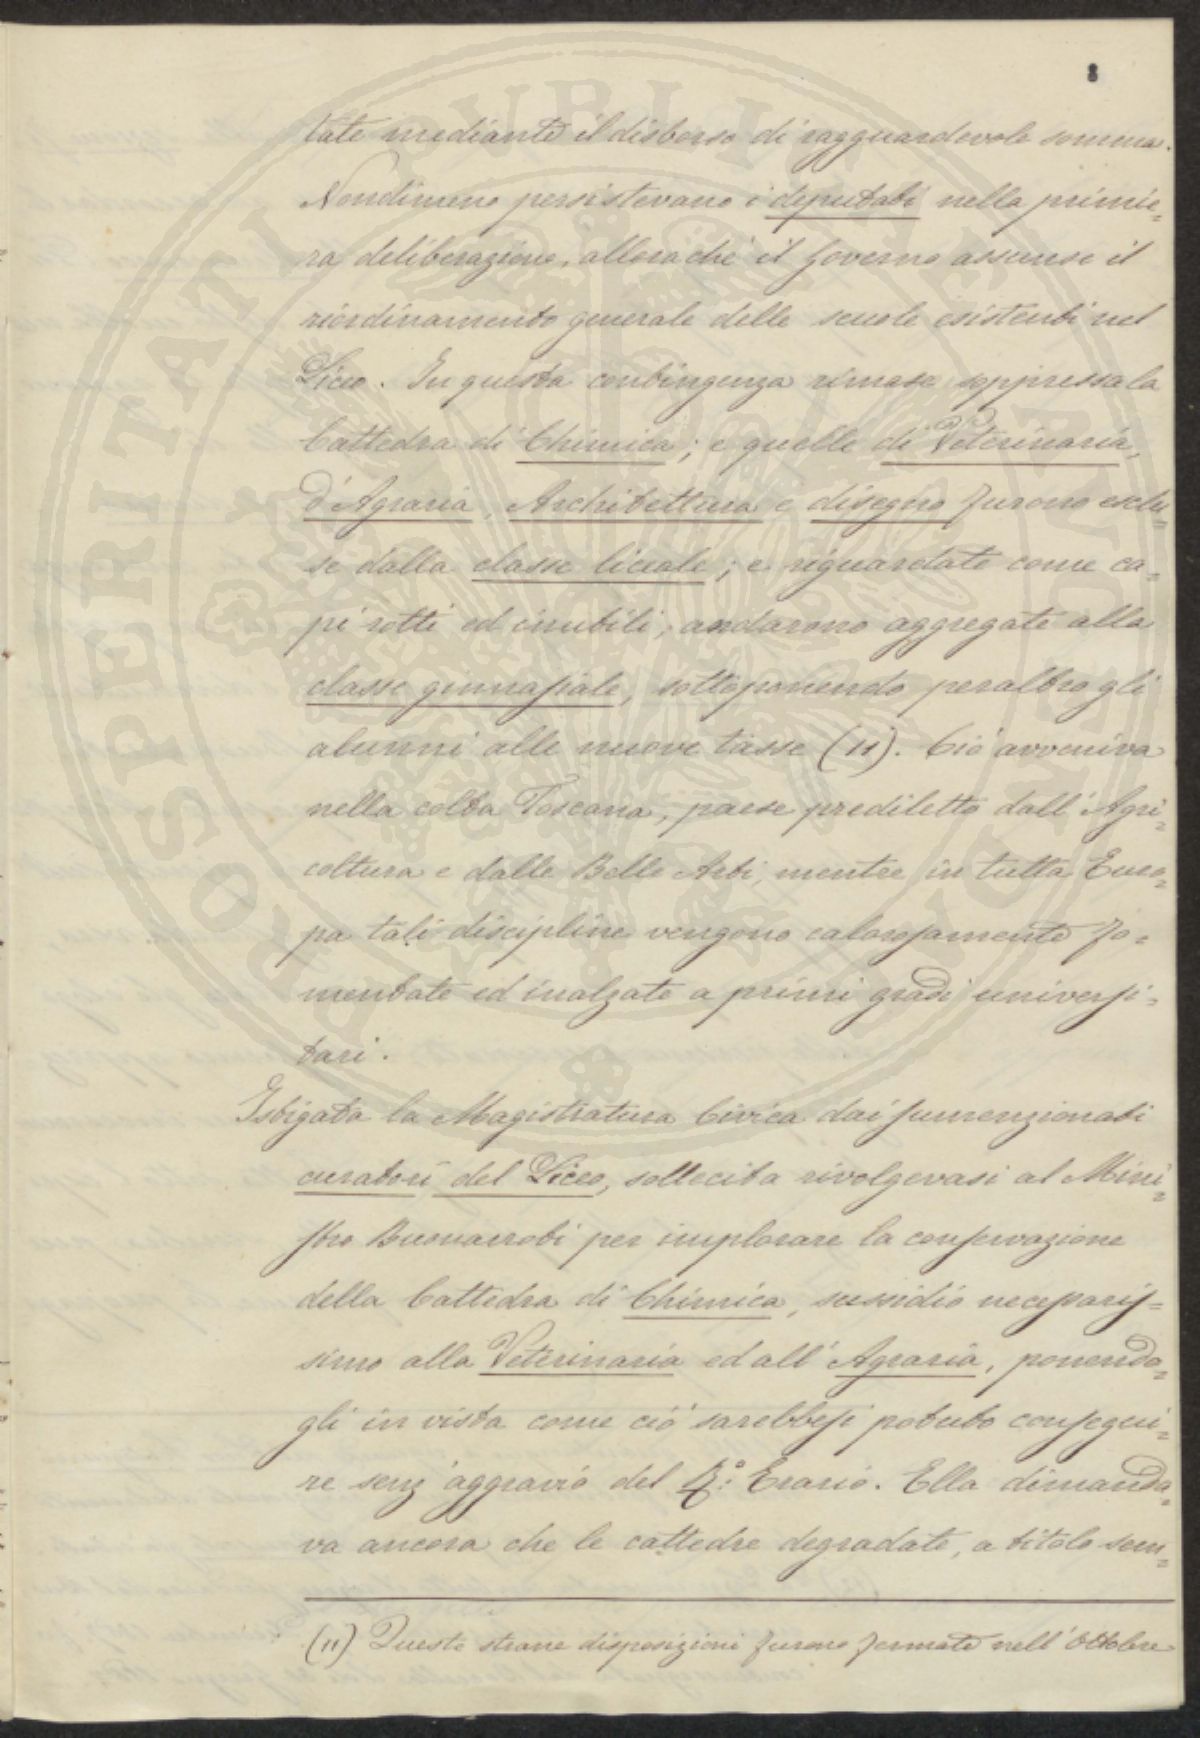 8
tate mediante il disborso di ragguardevole somma.
Nondimeno persistevano i deputati nella primie=
ra deliberazione, allorachè il Governo assunse il
riordinamento generale delle scuole esistenti nel
Liceo. In questa contingenza rimase soppressa la
Cattedra di Chimica; e quelle di Veterinaria,
d'Agraria, Architettura e disegno furono esclu=
se dalla classe liceale; e riguardate come ca=
pi rotti ed inutili, andarono aggregate alla
classe ginnasiale, sottoponendo peraltro gli
alunni alle nuove tasse (11). Ciò avveniva
nella colta Toscana, paese prediletto dall'Agri=
coltura e dalle Belle Arti, mentre in tutta Euro=
pa tali discipline vengono calorosamente fo=
mentate ed inalzate a primi gradi universi=
tari.
Istigata la Magistratura Civica dai summenzionati
curatori del Liceo, sollecita rivolgevasi al Mini=
stro Buonarroti per implorare la conservazione
della Cattedra di Chimica, sussidio necessaris=
simo alla Veterinaria ed all'Agraria, ponendo=
gli in vista come ciò sarebbesi potuto consegui=
re senz'aggravio del R.° Erario. Ella dimanda=
va ancora che le cattedre degradate, a titolo sem=
(11) Queste strane disposizioni furono fermate nell'Ottobre
PROSPERITATI PUBLICAE AUGENDAE